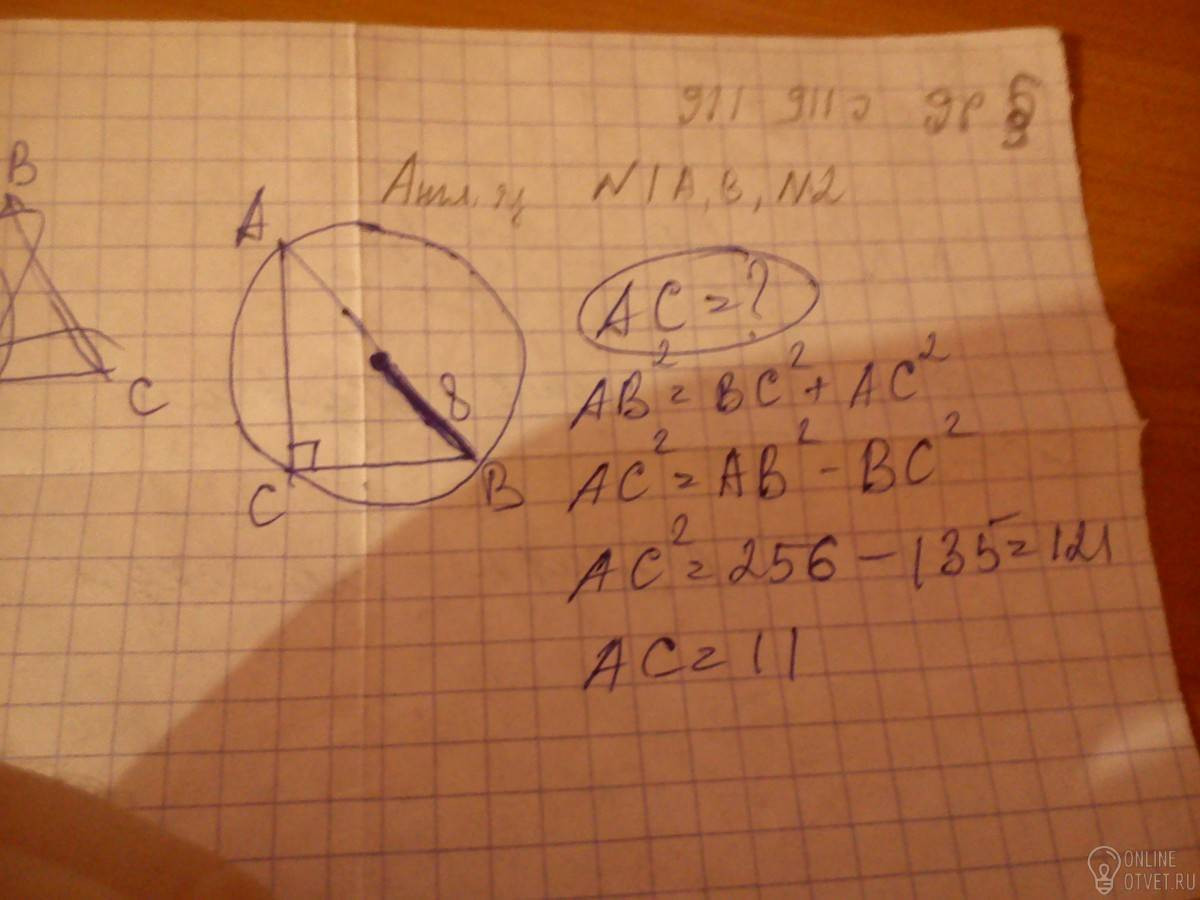 Англ. яз N1A, B, N2
B
C
A
C
B
8
AC = ?
AB² = BC² + AC²
AC² = AB² - BC²
AC² = 256 - 135 = 121
AC = 11
ONLINE
OTVET.RU